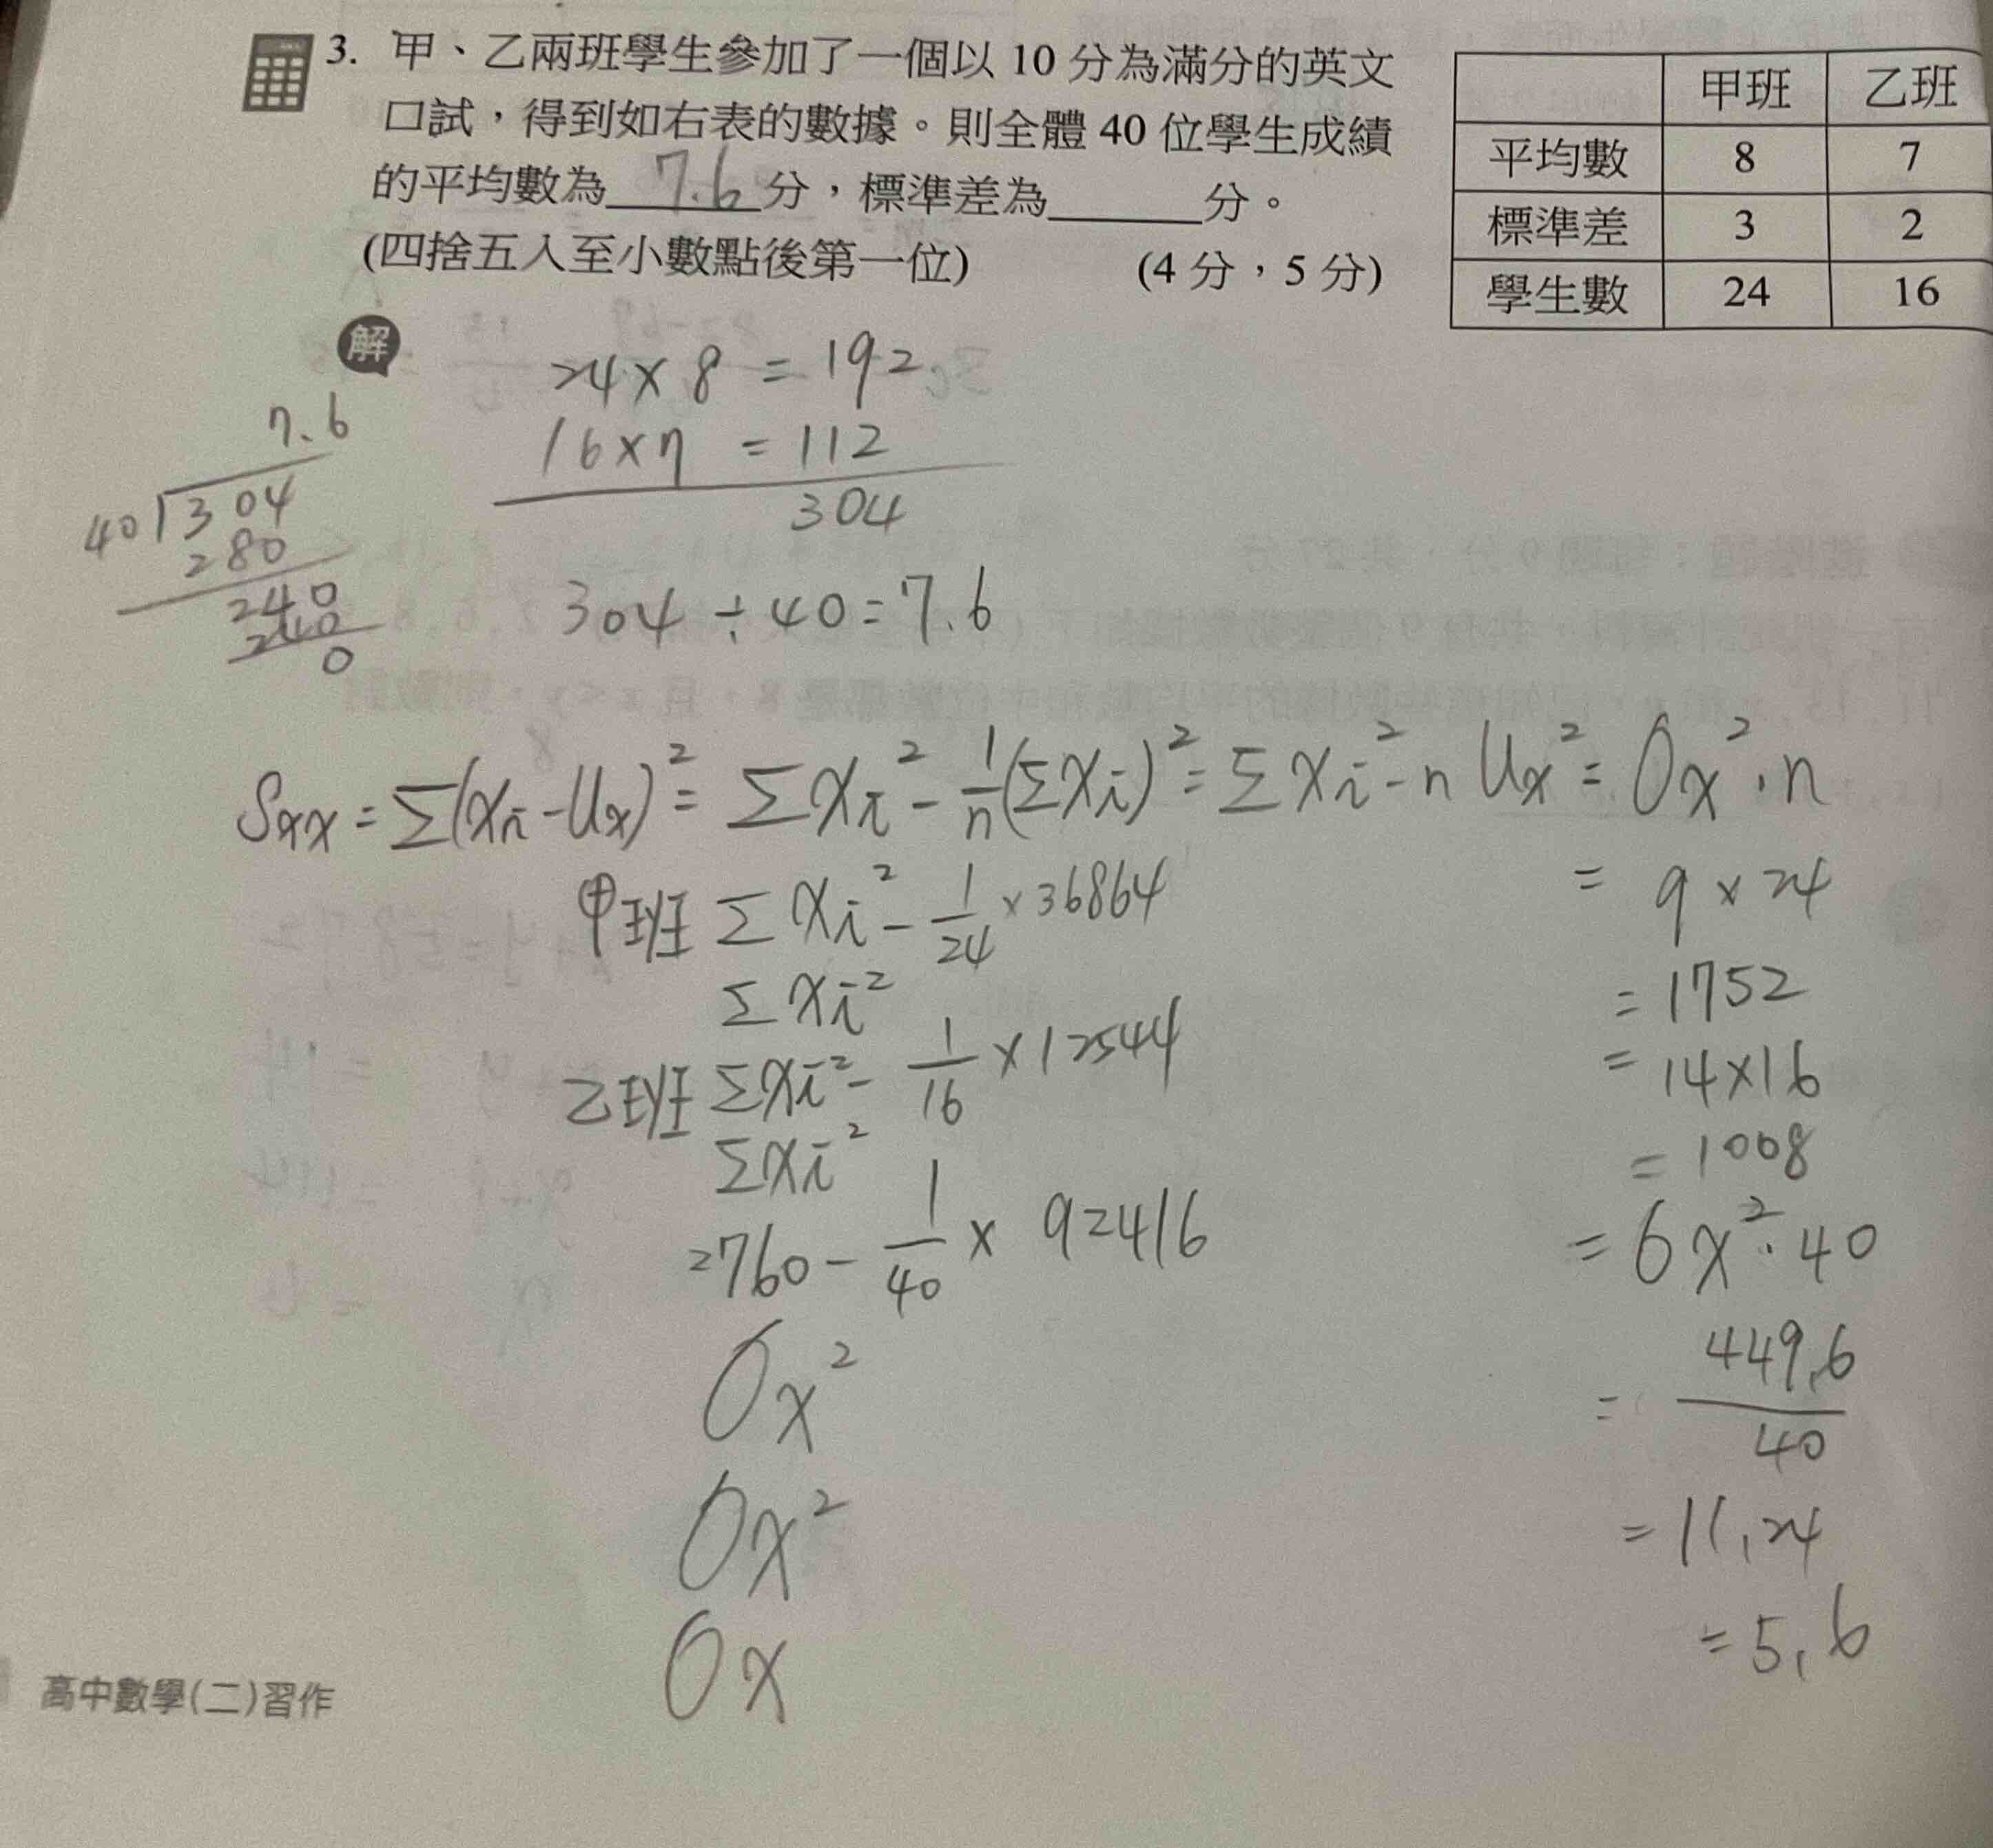 3. 甲、乙兩班學生參加了一個以 10 分為滿分的英文
口試，得到如右表的數據。則全體 40 位學生成績
的平均數為 7.6 分，標準差為______分。
(四捨五入至小數點後第一位) (4 分，5 分)
甲班 乙班
平均數 8 7
標準差 3 2
學生數 24 16
解
24 × 8 = 192
16 × 7 = 112
304
7.6
40 304
280
240
240
0
304 ÷ 40 = 7.6
Sxx = Σ(xi - Ux)² = Σxi² - 1/n (Σxi)² = Σxi² - n Ux² = Ox² · n
甲班 Σxi² - 1/24 × 36864 = 9 × 24
Σxi² = 1752
乙班 Σxi² - 1/16 × 12544 = 14×16
Σxi² = 1008
2760 - 1/40 × 92416 = 6x² · 40
Ox² = 449.6/40
Ox² = 11.24
Ox = 5.6
高中數學(二)習作